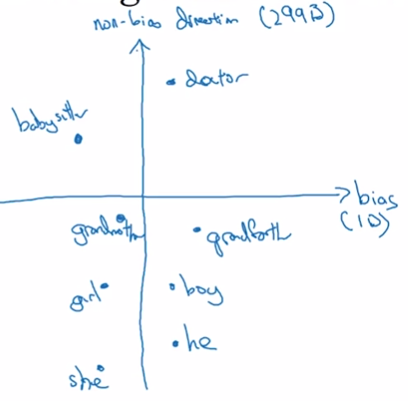 non-bias direction (299D)
doctor
babysitter
bias
(1D)
grandmoth
grandfath
girl
boy
he
she